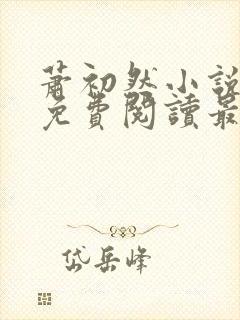 蕭初然小說
免費閱讀最
岱岳峰